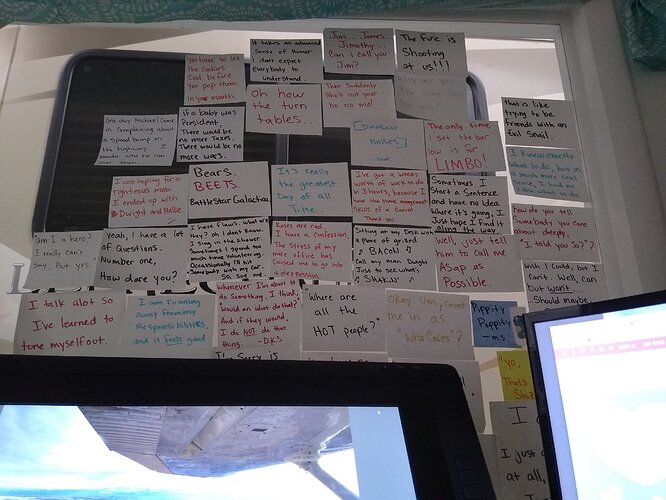 You have to let
the Cookies
Cool before
You pop them
in your mouth
it takes an advanced
Sense of Humor.
I don't expect
everybody to
understand.
Jim... James...
Jimothy...
Can I call you
Jim?
The Fire is
Shooting
at us!!!
One day Michael Came
in Complaining about
a speed bump on
the highway. I
wonder who he ran
over then.
if a baby was
President,
There would be
no more Taxes.
There would be
no more wars.
Oh how
the turn
tables...
Then Suddenly
She's not your
ho no mo!
Why are you
the way that
[Dinosaur
noises]
The only time
I set the bar
low is for
LIMBO!
that is like
trying to be
friends with an
Evil Snail.
I was hoping for a
righteous mob.
I ended up with
Dwight and Nellie.
Bears.
BEETS
BattleStar Galactica
It's really
the greatest
Day of all
Time
I've got a weeks
worth of work to do
in 3 hours, because I
have the time management
Skills of a Carrot.
Sometimes I
Start a Sentence
and have no idea
Where it's going, I
Just hope I find it
along the way.
I knew exactly
what to do, but in
a much more real
Sense, I had no
idea
am I a hero?
I really can't
Say, But yes.
Yeah, I have a lot
of Questions.
Number one,
How dare you?
I have flaws. what are
they? oh I don't know,
I sing in the Shower.
Sometimes I spend too
much time Volunteering.
Occasionally I'll hit
Somebody with my car.
So, sue me
Roses are red,
I have a Confession
The Stress of my
mere office has
Caused me to go into
a depression
Sitting at my Desk with
a plate of fryited
♫ BACON ♫
Call my man Dwight
Just to see what's
♫ SHAKIN' ♫
Well, just tell
him to Call me
ASap as
Possible.
how do you tell
Somebody you care
about deeply,
"I told you So"?
wish I Could, but I
Can't. Well, can
but won't.
Should maybe
I talk alot So
I've learned to
tune myself out.
I am running
away from my
Responsibilities,
and it feels good.
Whenever I'm about to
do Something, I think,
would an idiot do that?
And if they would,
I do NOT do that
thing. -D.K.S.
Where are
all the
HOT people?"
Okay. Um, Count
me in as
"Who Cares"?
Pippity
Poppity
-m.s.
"yo,
That's
I'm Sorry is
I
I just
at all,